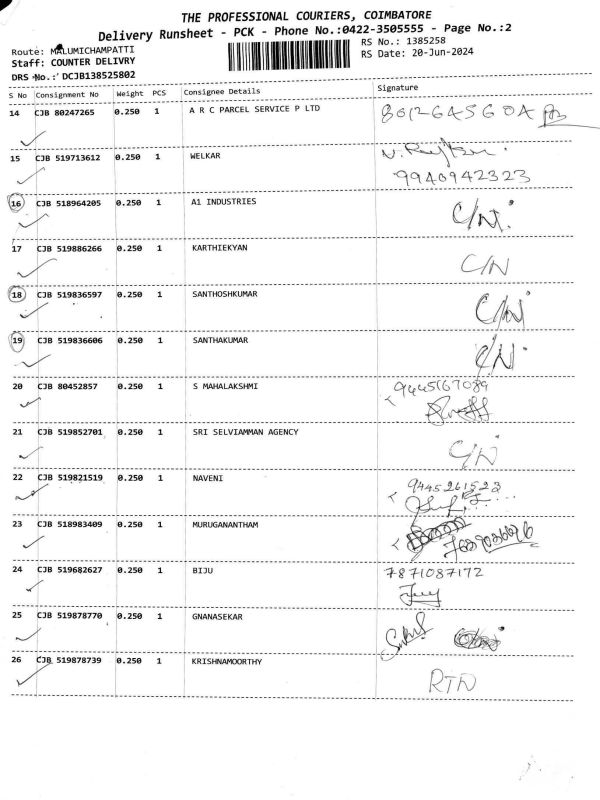 THE PROFESSIONAL COURIERS, COIMBATORE
Delivery Runsheet - PCK - Phone No.:0422-3505555 - Page No.:2
Route: MALUMICHAMPATTI
RS No.: 1385258
Staff: COUNTER DELIVRY
RS Date: 20-Jun-2024
DRS No.: DCJB138525802
S No Consignment No Weight PCS Consignee Details Signature
14 CJB 80247265 0.250 1 A R C PARCEL SERVICE P LTD
15 CJB 519713612 0.250 1 WELKAR
9940942323
16 CJB 518964205 0.250 1 A1 INDUSTRIES C/N
17 CJB 519886266 0.250 1 KARTHIEKYAN C/N
18 CJB 519836597 0.250 1 SANTHOSHKUMAR C/N
19 CJB 519836606 0.250 1 SANTHAKUMAR C/N
20 CJB 80452857 0.250 1 S MAHALAKSHMI 9445167089
21 CJB 519852701 0.250 1 SRI SELVIAMMAN AGENCY C/N
22 CJB 519821519 0.250 1 NAVENI 9445261523
23 CJB 518983409 0.250 1 MURUGANANTHAM
24 CJB 519682627 0.250 1 BIJU 7871087172
25 CJB 519878770 0.250 1 GNANASEKAR
26 CJB 519878739 0.250 1 KRISHNAMOORTHY RTN